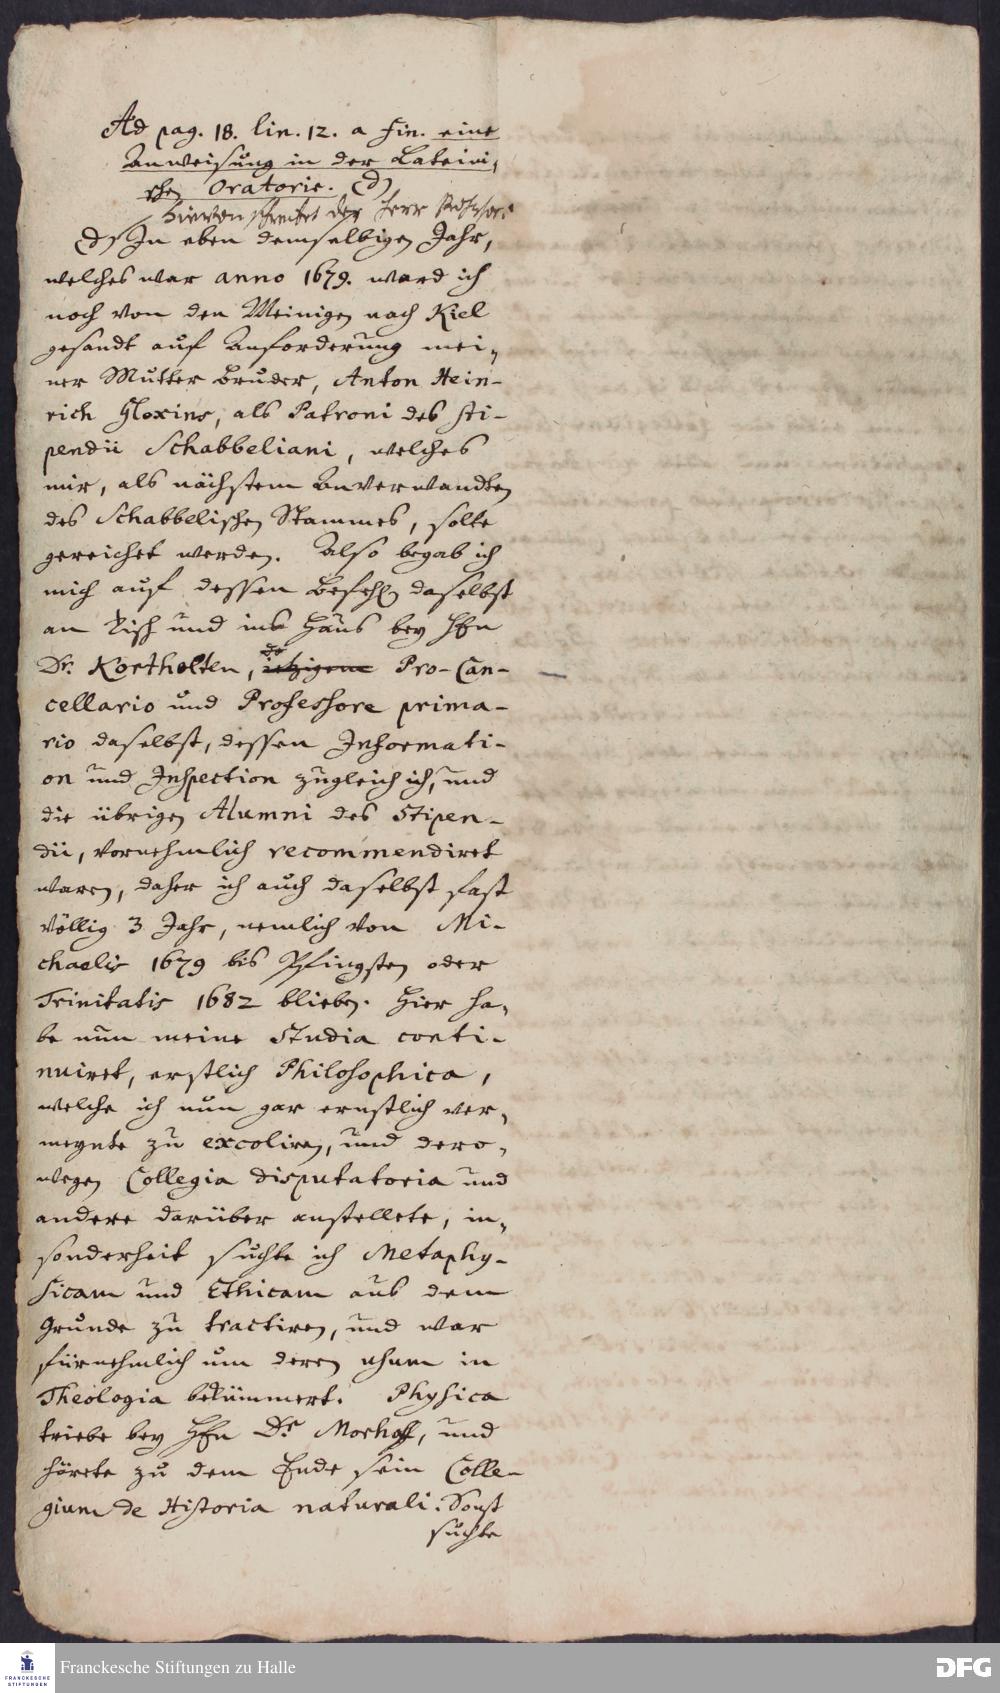 Ad pag. 18. lin. 12. a fin. eine
Anweisung in der Lateini,
schen Oratorie. d)
hievon schreibet der Herr Professor
d) In eben demselbigen Jahr,
welches war anno 1679. ward ich
noch von den Meinigen nach Kiel
gesandt auf Anforderung mei,
ner Mutter Bruder, Anton Hein-
rich Gloxins, als Patroni des sti-
pendii Schabbeliani, welches
mir, als nächstem Anverwandten
des Schabbelischen Stammes, solte
gereichet werden. Also begab ich
mich auf dessen Befehl daselbst
an Tisch und ins Haus bey HEn
Dr. Kortholten, ietzigem Pro-Can-
cellario und Professore prima-
rio daselbst, dessen Informati-
on und Inspection zugleich ich, und
die übrigen Alumni des Stipen-
dii, vornehmlich recommendiret
waren, daher ich auch daselbst fast
völlig 3 Jahr, nemlich von Mi-
chaelis 1679 bis Pfingsten oder
Trinitatis 1682 blieben. Hier ha,
be nun meine Studia conti-
nuiret, erstlich Philosophica,
welche ich nun gar ernstlich ver,
meynte zu excoliren, und dero,
wegen Collegia disputatoria und
andere darüber anstellete, in,
sonderheit suchte ich Metaphy-
sicam und Ethicam aus dem
Grunde zu tractiren, und war
fürnehmlich um deren usum in
Theologia bekümmert. Physica
triebe bey HEn Dr. Morhoff, und
hörete zu dem Ende sein Colle-
gium de Historia naturali. Sonst
suchte
Franckesche Stiftungen zu Halle
FRANCKESCHE
STIFTUNGEN
DFG